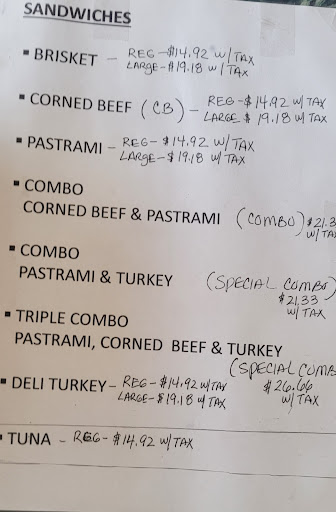 SANDWICHES
▪ BRISKET – REG-$14.92 W/TAX
LARGE-$19.18 W/TAX
▪ CORNED BEEF (CB) – REG-$14.92 W/TAX
LARGE $19.18 W/TAX
▪ PASTRAMI – REG-$14.92 W/TAX
LARGE-$19.18 W/TAX
▪ COMBO
CORNED BEEF & PASTRAMI (COMBO) $21.3
W/TA
▪ COMBO
PASTRAMI & TURKEY (SPECIAL COMBO)
$21.33
W/TAX
▪ TRIPLE COMBO
PASTRAMI, CORNED BEEF & TURKEY
(SPECIAL COMB
▪ DELI TURKEY- REG-$14.92 W/TAX $26.66
LARGE-$19.18 W/TAX W/TAX
▪ TUNA – REG-$14.92 W/TAX